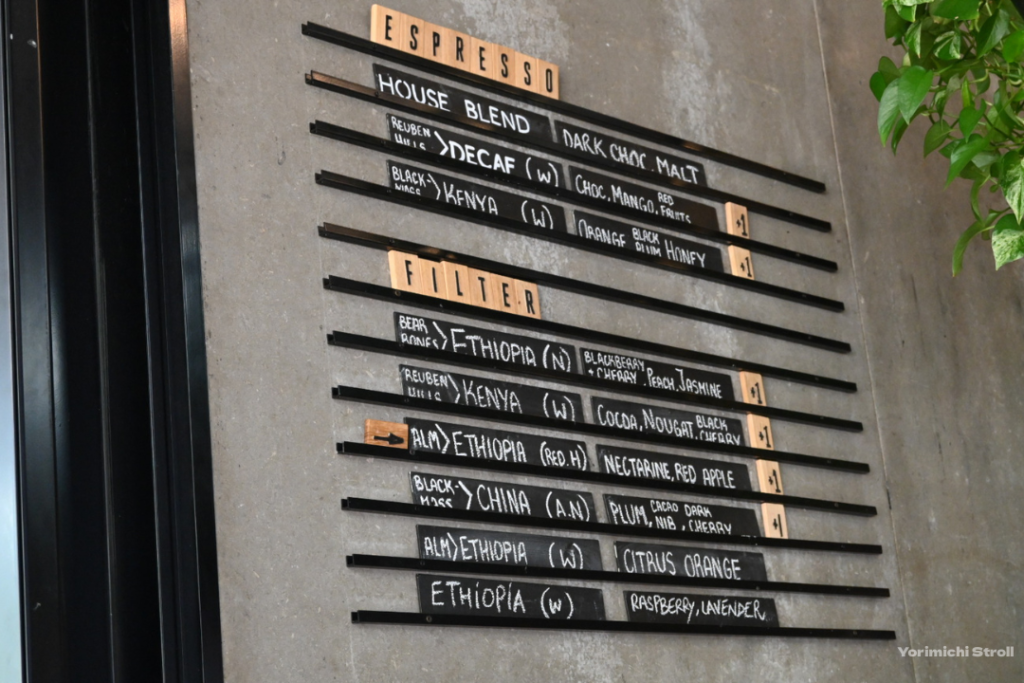 ESPRESSO
HOUSE BLEND DARK CHOC, MALT
REUBEN HILLS > DECAF (W) CHOC, MANGO, RED FRUITS +1
BLACK- > KENYA (W) ORANGE BLACK PLUM HONEY +1
FILTER
BEAR BONES > ETHIOPIA (N) BLACKBERRY + CHERRY, PEACH, JASMINE +1
REUBEN HILLS > KENYA (W) COCOA, NOUGAT, BLACK CHERRY +1
→ ALM > ETHIOPIA (RED.H) NECTARINE, RED APPLE +1
BLACK- > CHINA (A.N) PLUM, CACAO NIB, DARK CHERRY +1
ALM > ETHIOPIA (W) CITRUS ORANGE
ETHIOPIA (W) RASPBERRY, LAVENDER
Yorimichi Stroll